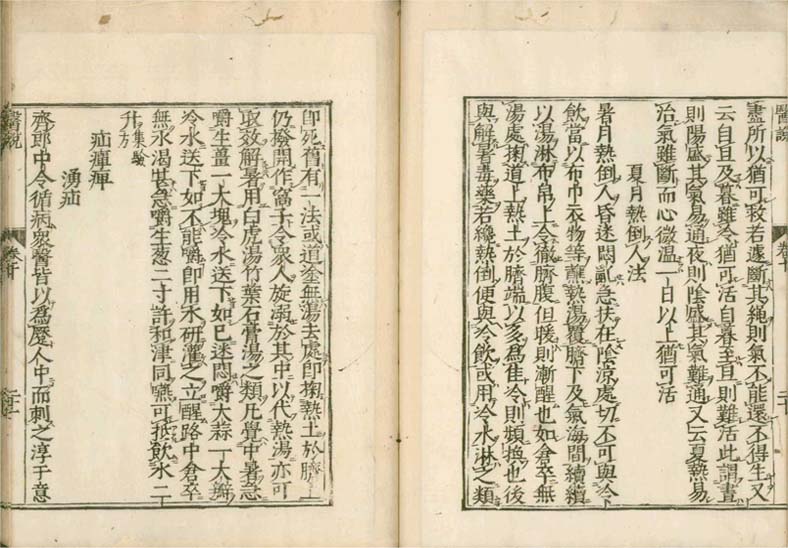 盡所以猶可救若遽斷其繩則氣不能還不得生又
云自旦及暮雖冷猶可活自暮至旦則難活此謂晝
則陽盛其氣易通夜則陰盛其氣難通又云夏熱易
治氣雖斷而心微溫一日以上猶可活
夏月熱倒人法
暑月熱倒人昏迷悶亂急扶在陰涼處切不可與冷
飲當以布巾衣物等蘸熱湯覆臍下及氣海間續續
以湯淋布帛上令徹臍腹但暖則漸醒也如倉卒無
湯處掬道上熱土於臍端以多為佳冷則頻換也後
與解暑毒藥若纔熱倒便與冷飲或用冷水淋之類
醫說
卷十
二十
即死舊有一法或道塗無湯去處即掬熱土於臍上
仍撥開作窩子令眾人旋溺於其中以代熱湯亦可
取效解暑用白虎湯竹葉石膏湯之類凡覺中暑急
嚼生薑一大塊冷水送下如已迷悶嚼大蒜一大瓣
冷水送下如不能嚼即用水研灌之立醒路中倉卒
無水渴甚急嚼生葱二寸許和津同嚥可抵飲水二
升集驗方
疝癉痺
湧疝
齊郎中令循病衆醫皆以為蹷人中而刺之淳于意
醫說
卷十